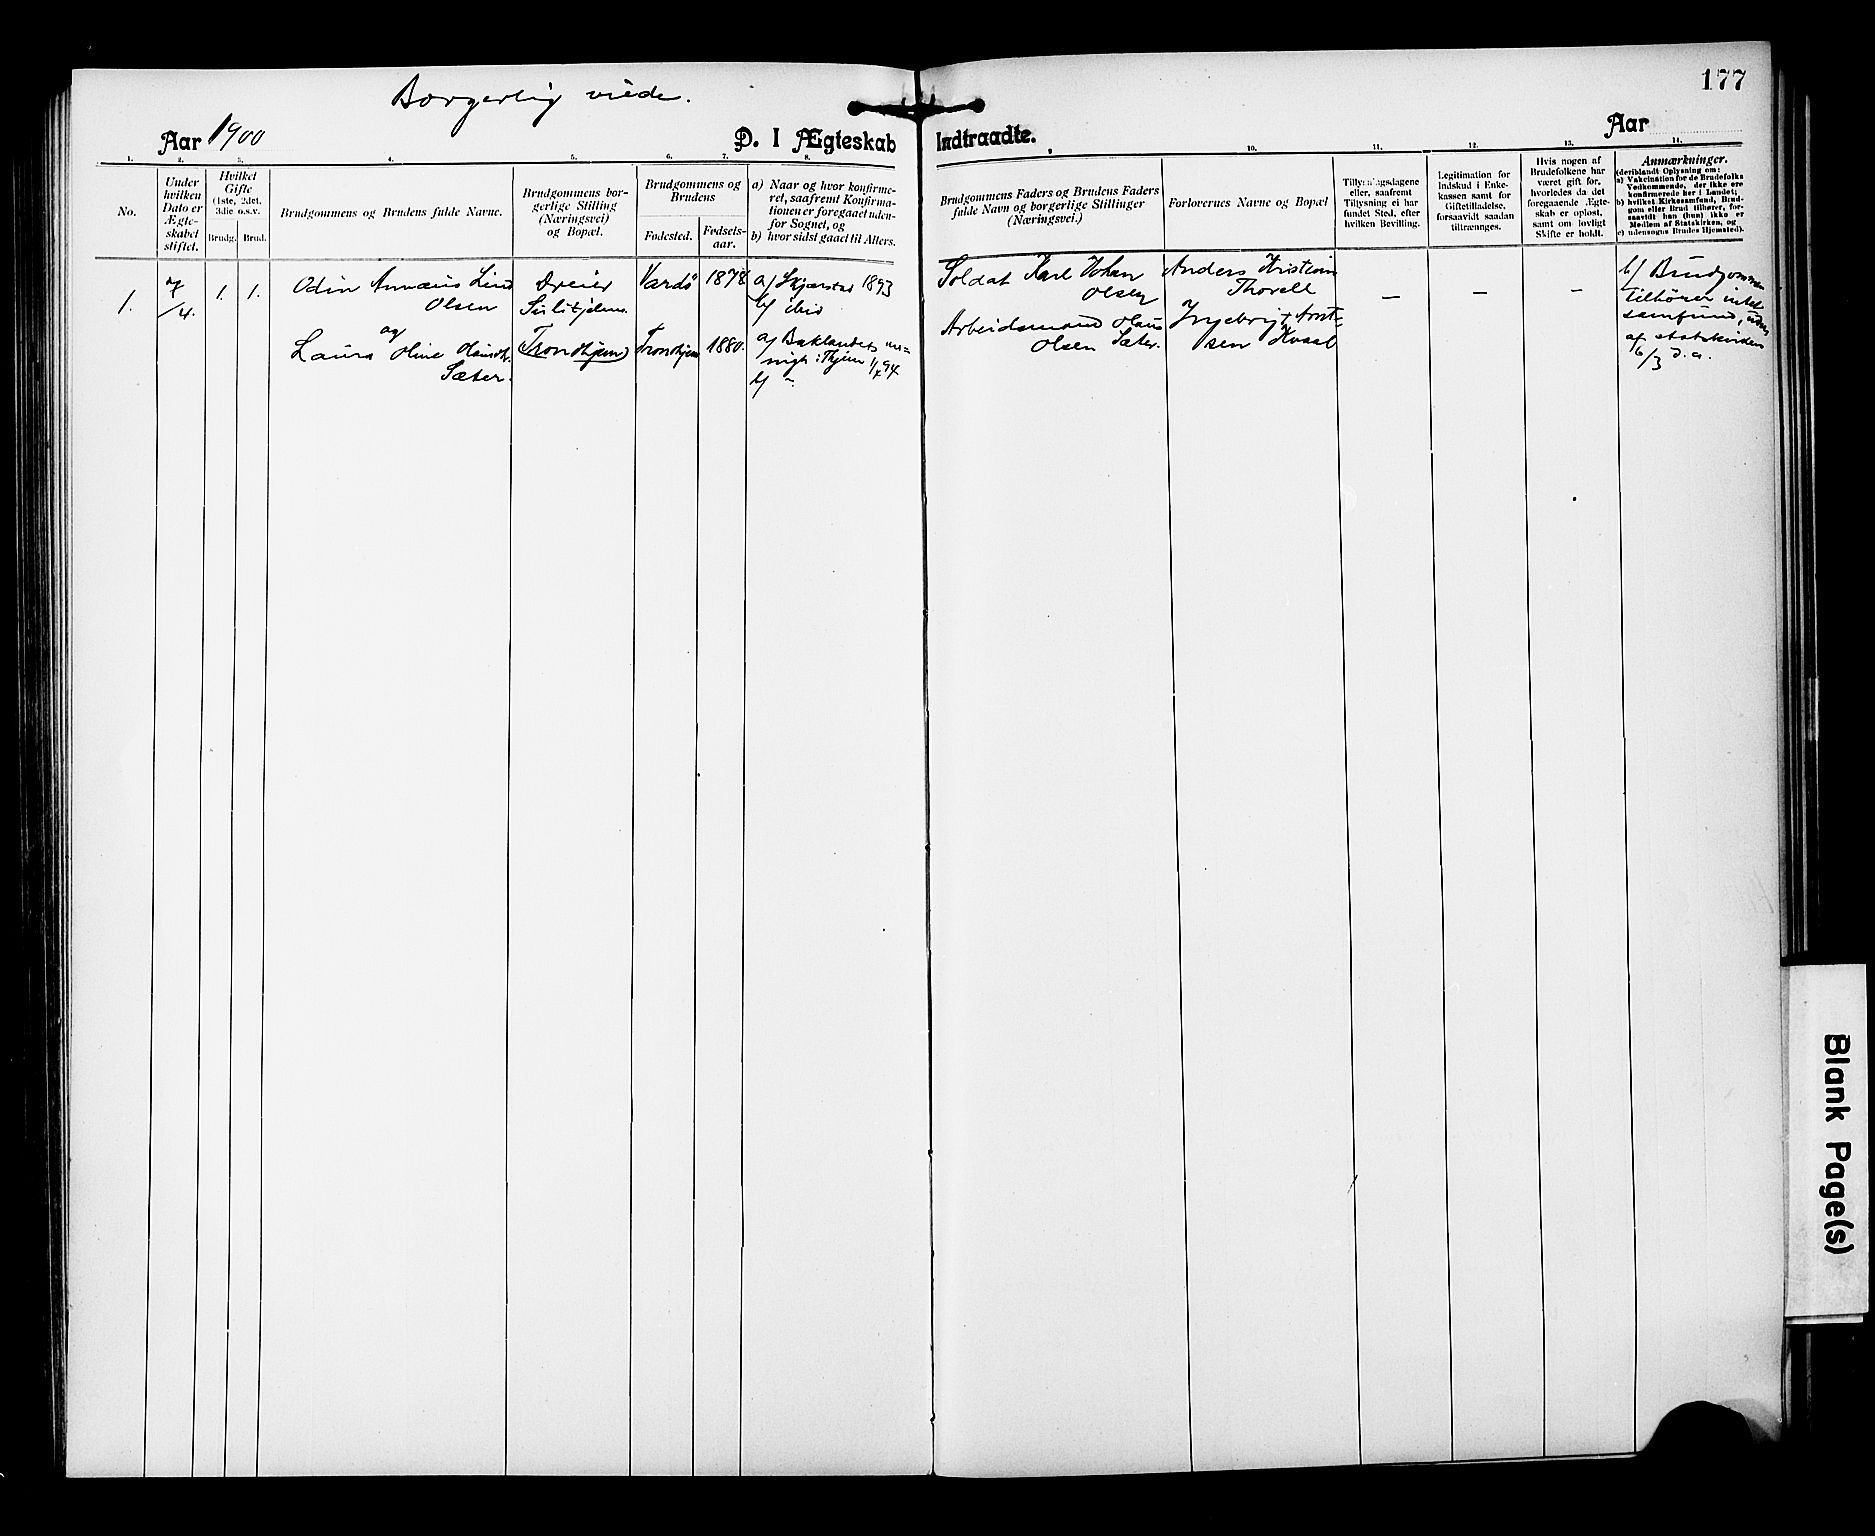 177
Borgerlig viede.
Aar 1900
D. I Ægteskab Indtraadte.
Aar
1. 2. 3. 4. 5. 6. 7. 8. 10. 11. 12. 13. 14.
No.
Under
hvilken
Dato er
Ægte-
skabet
stiftet.
Hvilket
Gifte
(1ste, 2det,
3die o.s.v.
Brudg. Brud.
Brudgommens og Brudens fulde Navne.
Brudgommens bor-
gerlige Stilling
(Næringsvei)
og Bopæl.
Brudgommens og
Brudens
Fødested.
Fødsels-
aar.
a) Naar og hvor konfirme-
ret, saafremt Konfirma-
tionen er foregaaet uden-
for Sognet, og
b) hvor sidst gaaet til Alters.
Brudgommens Faders og Brudens Faders
fulde Navn og borgerlige Stillinger
(Næringsvei.)
Forlovernes Navne og Bopæl
Tillysningsdagene
eller, saafremt
Tillysning ei har
fundet Sted, efter
hvilken Bevilling.
Legitimation for
Indskud i Enke-
kassen samt for
Giftetilladelse,
forsaavidt saadan
tiltrænnges.
Hvis nogen af
Brudefolkene har
været gift før,
hvorledes da det
foregaaende Ægte-
skab er opløst,
samt om lovligt
Skifte er holdt.
Anmærkninger.
(deriblandt Oplysning om:
a) Vakcination for de Brudefolks
Vedkommende, der ikke ere
konfirmerede her i Landet;
b) hvilket Kirkesamfund, Brud-
gom eller Brud tilhører, for-
saavidt han (hun) ikke er
Medlem af Statskirken, og
c) udensogns Brudes Hjemsted).
1.
7/4.
1. 1.
Odin Annæus Lind
Olsen
og
Laura Oline
Sæter.
Dreier
Sulitjelma.
(Trondhjem)
Vardö 1878
Trondhjem 1880.
a/ Skjerstad 1893
b/ ibid
a/ Baklandets me=
nigh. i Thjem 94
b/ "
Soldat Karl Johan
Olsen
Arbeidsmand Olaus
Olsen Sæter.
Anders Kristian
Thorell
Ingebrigt
sen
— — —
b/ Brudgommen
tilhører intet
samfund, udm.
af statskirken
6/3 d.a.
Blank Page(s)